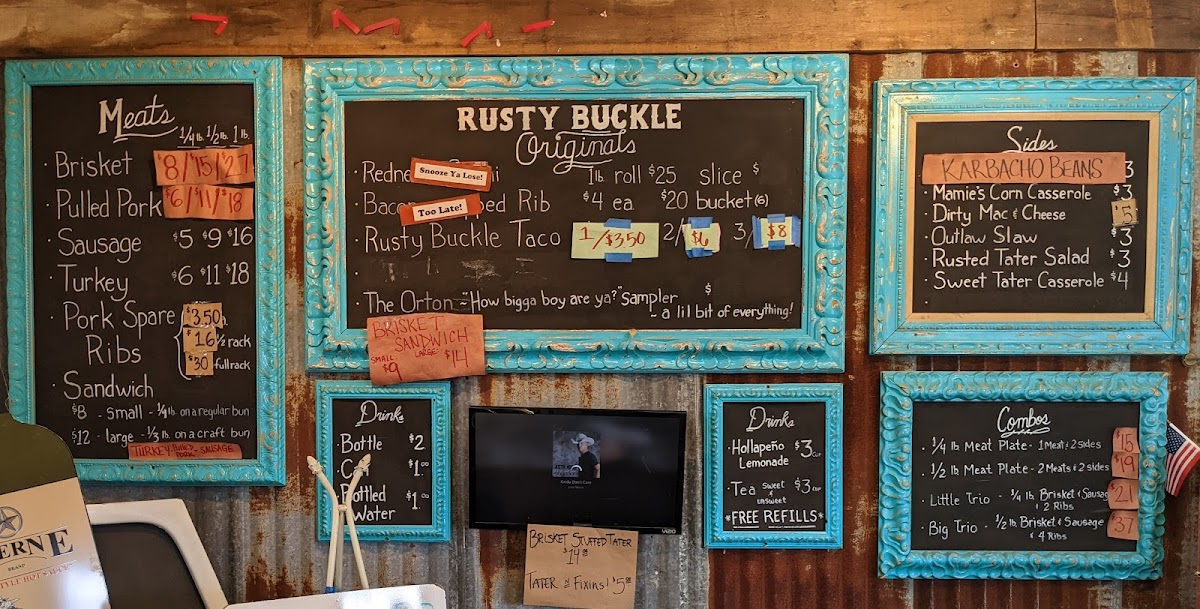 Meats
1/4 lb. 1/2 lb. 1 lb.
· Brisket $8/$15/$27
· Pulled Pork $6/$11/$18
· Sausage $5 $9 $16
· Turkey $6 $11 $18
· Pork Spare Ribs
$3.50
$16 1/2 rack
$30 full rack
· Sandwich
$8 - small - 1/4 lb. on a regular bun
$12 - large - 1/3 lb. on a craft bun
TURKEY-PULLED PORK-SAUSAGE
RUSTY BUCKLE
Originals
· Redne Snooze Ya Lose! hi 1lb. roll $25 slice $
· Bacon Too Late! ped Rib $4 ea $20 bucket(6)
· Rusty Buckle Taco 1/$3.50 2/$6 3/$8
· The Orton "How bigga boy are ya?" Sampler $
- a li'l bit of everything!
BRISKET
SANDWICH
SMALL $9 LARGE $14
Sides
KARBACHO BEANS 3
· Mamie's Corn Casserole $3
· Dirty Mac & Cheese $5
· Outlaw Slaw $3
· Rusted Tater Salad $3
· Sweet Tater Casserole $4
Drinks
· Bottle $2
· C $1.00
· Bottled Water $1.00
VIZIO
BRISKET STUFFED TATER
$14.00
TATER N FIXINS! $5.00
Drinks
· Hollapeño Lemonade $3 CUP
· Tea sweet & unsweet $3 CUP
*FREE REFILLS*
Combos
· 1/4 lb. Meat Plate - 1 Meat & 2 sides $15
· 1/2 lb. Meat Plate - 2 Meats & 2 sides $19
· Little Trio - 1/4 lb Brisket & Sausage & 2 Ribs $21
· Big Trio - 1/2 lb Brisket & Sausage & 4 Ribs $37
ERNE
BRAND
STYLE HOT SAUCE